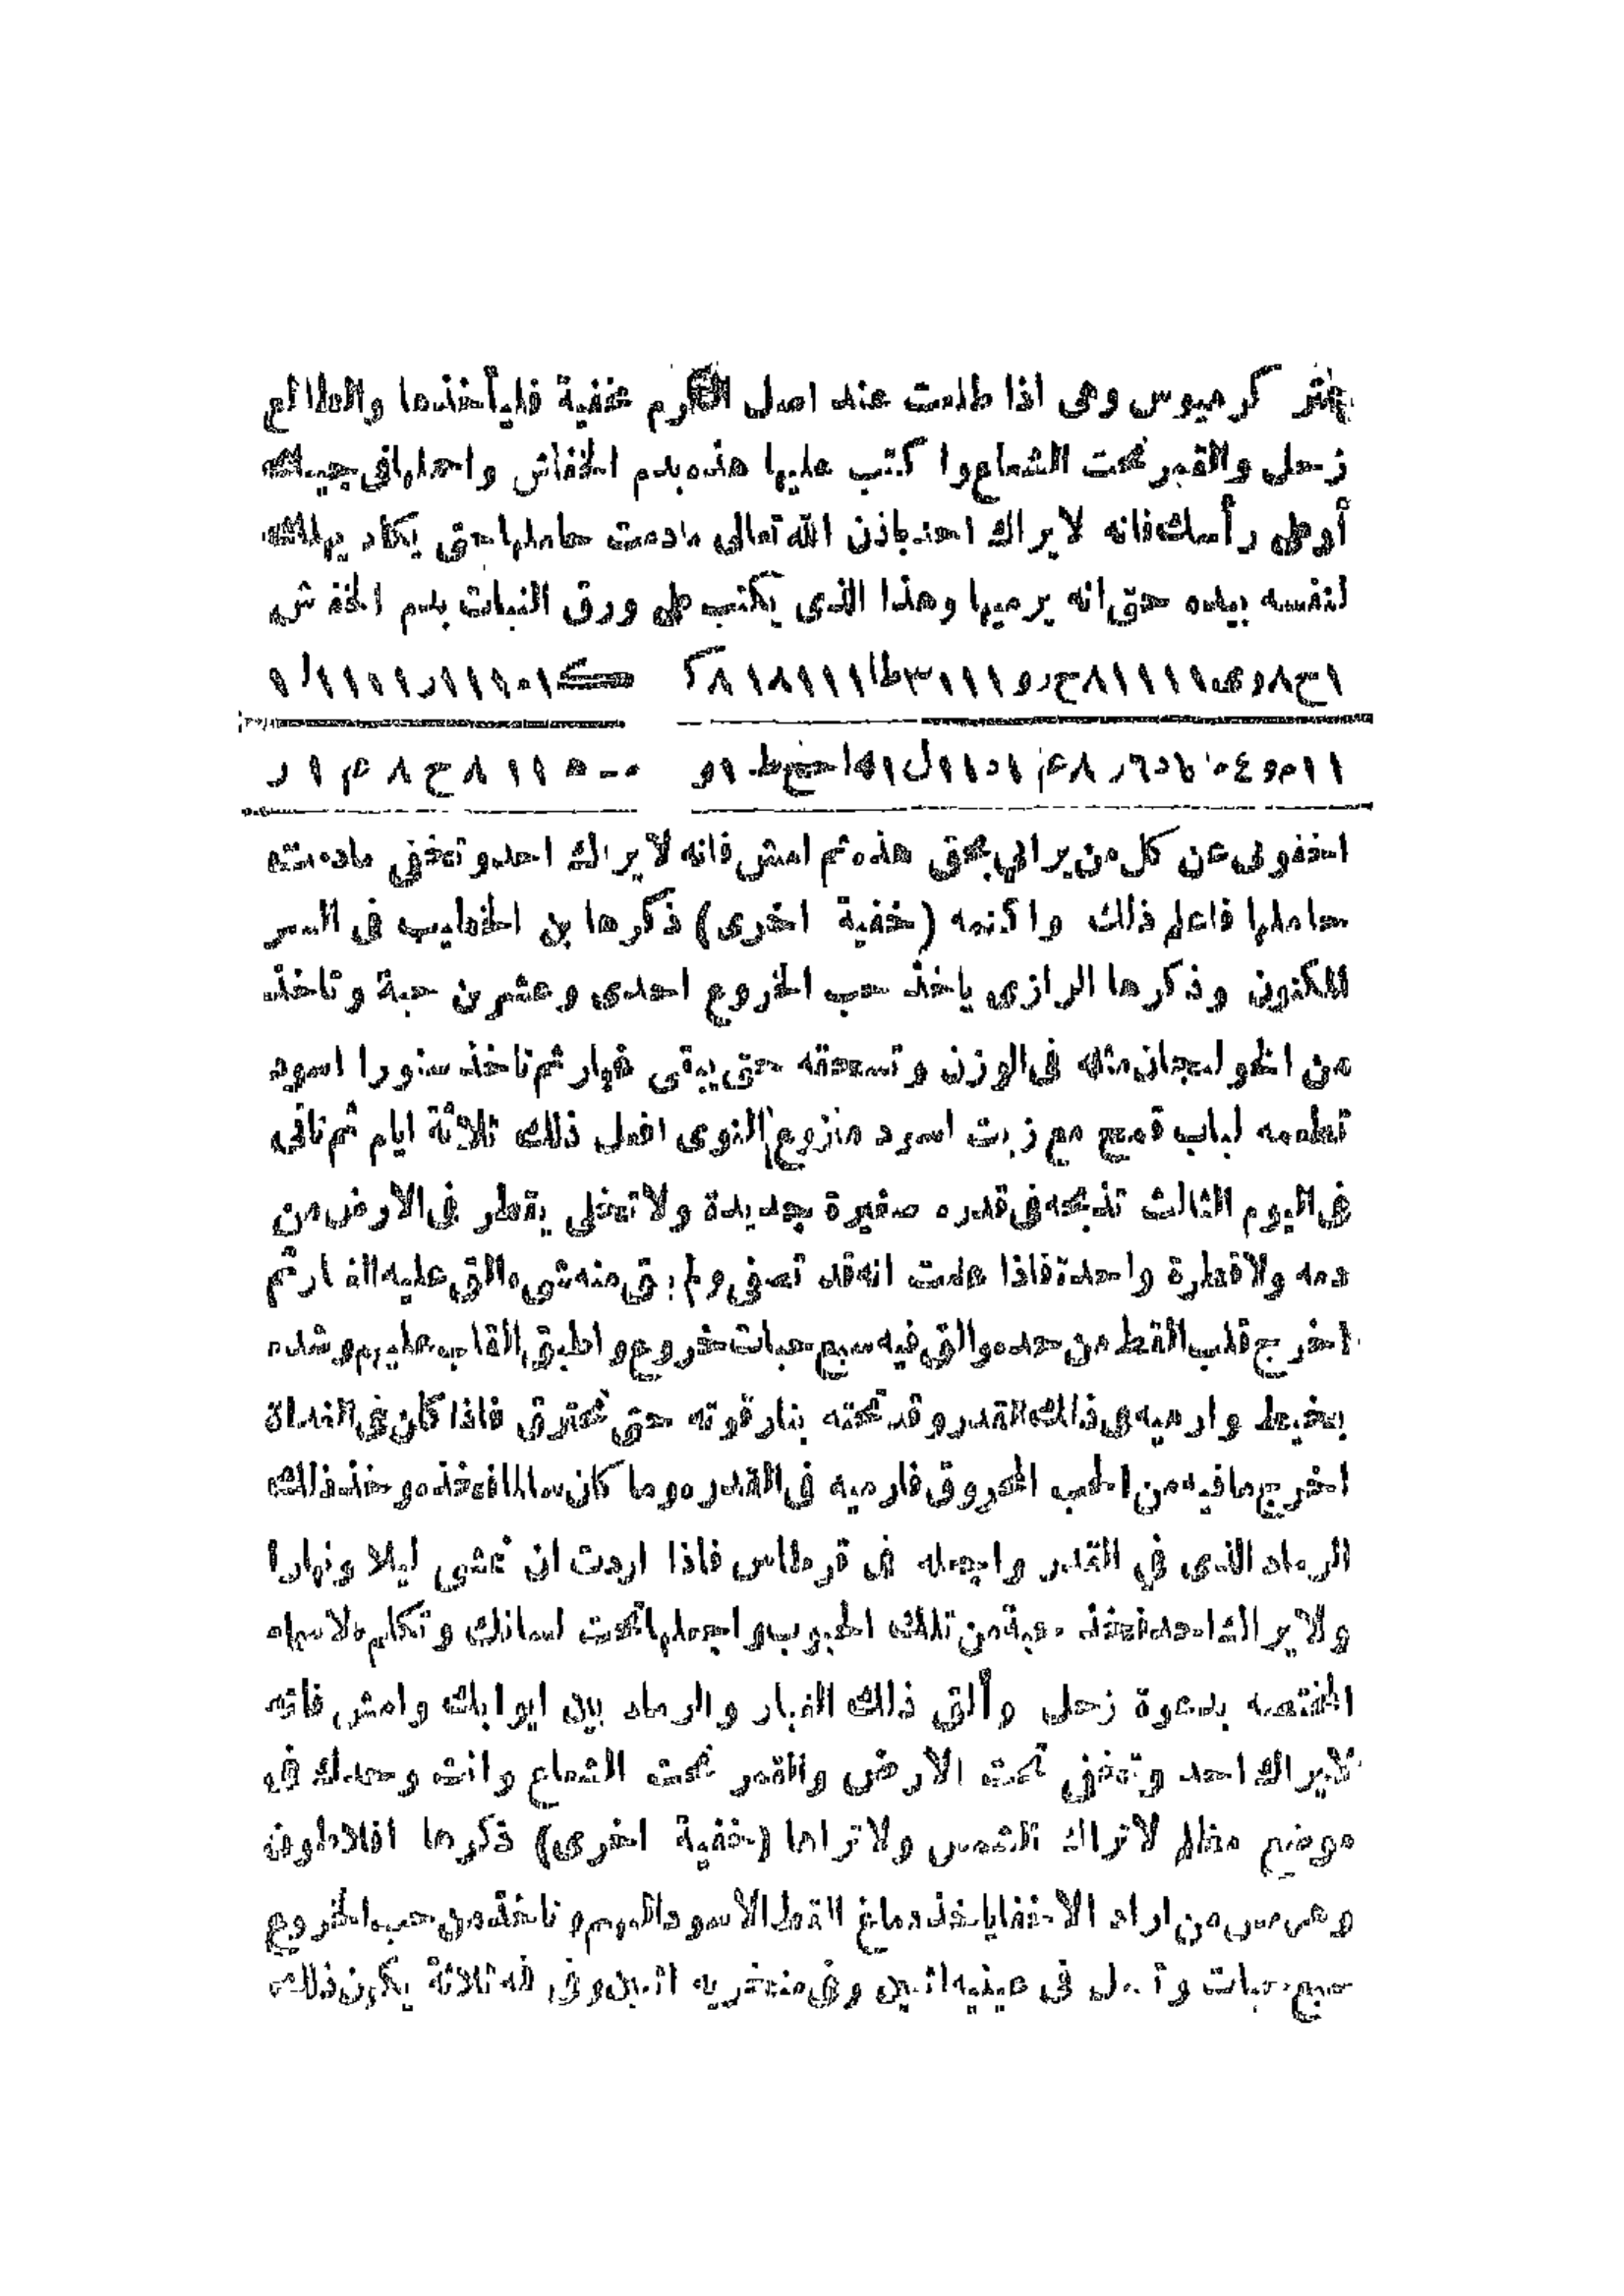 كرميوس وهى اذا طلعت عند اصل الكرم مخفية فليأخذها والطالع
زحل والقمر تحت الشعاع واكتب عليها هذه بدم الخفاش واحملها فى جيبك
أوعلى رأسك فانه لايراك احد باذن الله تعالى مادمت حاملها حتى يكاد يهلك
لنفسه بيده حتى انه يرميها وهذا الذى يكتب على ورق النبات بدم الخفاش
اخفونى عن كل من يرانى بحق هذه ثم امش فانه لايراك احد وتخفى مادمت
حاملها فاعلم ذلك واكتمه (خفية اخرى) ذكرها بن الخطيب فى السر
المكنون وذكرها الرازى ياخذ حب الخروع احدى وعشرين حبة وتاخذ
من الخولنجان مثله فى الوزن وتسحقه حتى يبقى غبار ثم تاخذ سنورا اسود
تطعمه لباب قمح مع زيت اسود منزوع النوى افعل ذلك ثلاثة ايام ثم تاتى
فى اليوم الثالث تذبحه فى قدره صغيرة جديدة ولا تخلى يقطر فى الارض من
دمه ولا قطرة واحدة فاذا علمت انه قد تصفى ولم يبق منه شىء والق عليه الغبار ثم
اخرج قلب القط من حده والق فيه سبع حبات خروع واطبق القلب عليهم وشده
بخيط وارميه فى ذلك القدر وقد تحته بنار قوته حتى تحترق فاذا كان فى الغداة
اخرج مافيه من الحب المحروق فارميه فى القدره وما كان سالما فخذه وخذ ذلك
الرماد الذى في القدر واجعله فى قرطاس فاذا اردت ان تمشى ليلا ونهارا
ولايراك احد فخذ حبة من تلك الحبوب واجعلها تحت لسانك وتكلم بالاسماء
المختصه بدعوة زحل وألق ذلك الغبار والرماد بين ابوابك وامش فانه
لايراك احد وتخفى تحت الارض والقمر تحت الشعاع وانت وحدك فى
موضع مظلم لاتراك الشمس ولا تراها (خفية اخرى) ذكرها افلاطون
وهى من اراد الاخفا ياخذ دماغ القط الاسود وتاخذ من حب الخروع
سبع حبات وفى عينيه اثنين وفى منخريه اثنين وفى فه ثلاثة يكون ذلك